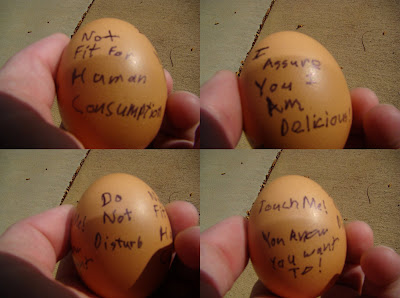 Not
Fit For
Human
Consumption
I
Assure
You I
Am
Delicious!
Do
Not
Disturb
Touch Me!
You know
You want
To!